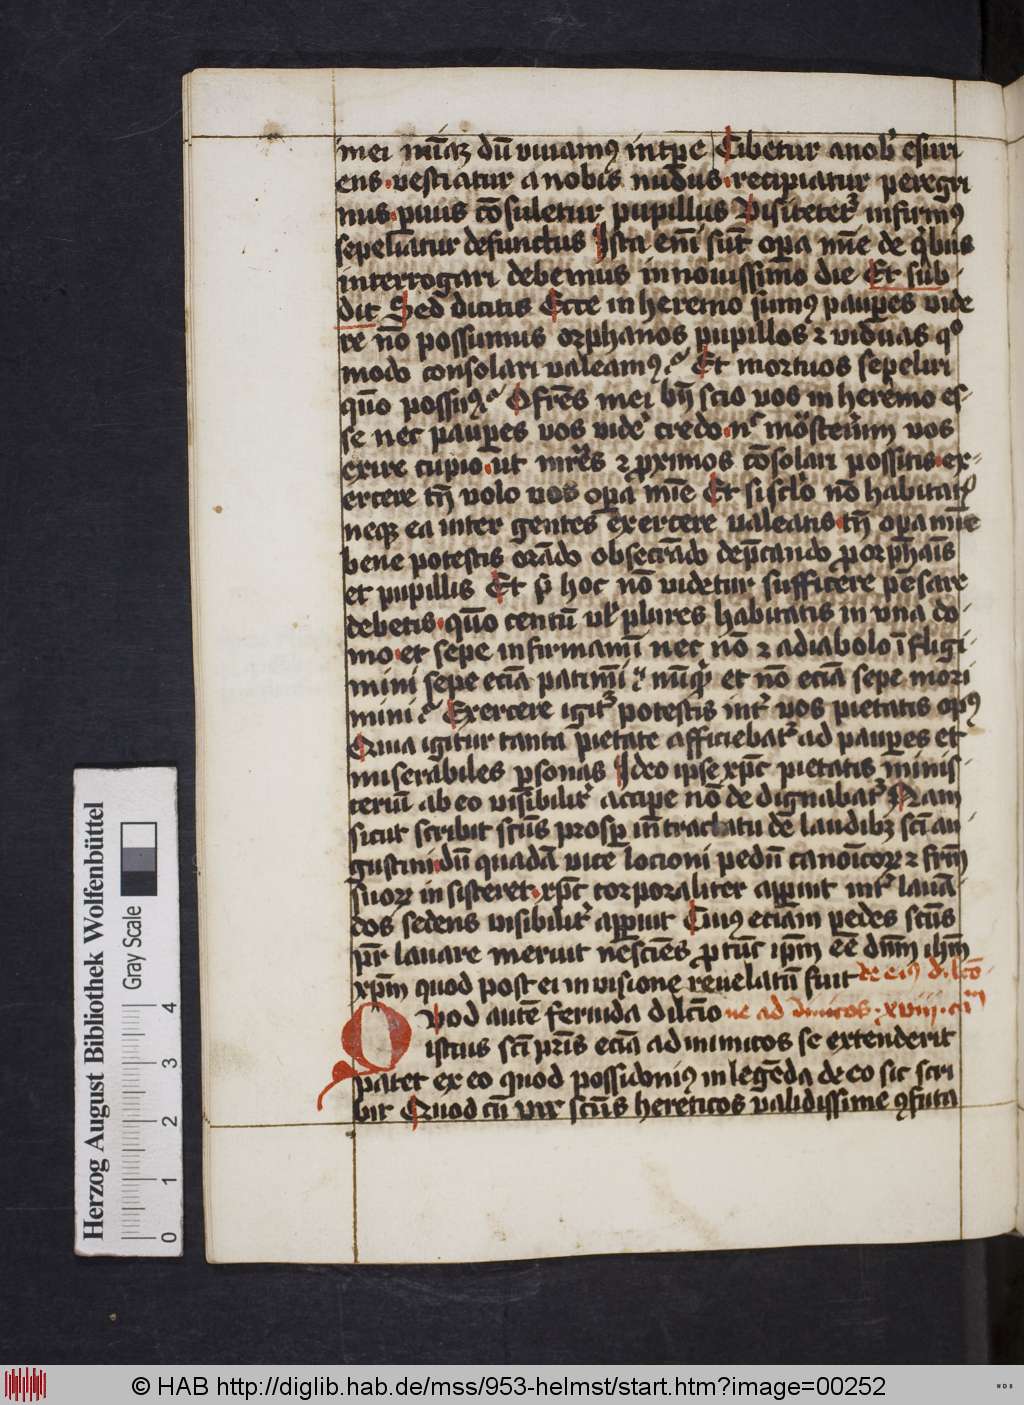 mei nūcꝫ dū viuamꝰ in tꝑe Cibetur a nob̄ esuri
ens · vestiatur a nobis nudus · recipiatur peregri
nus · piuis cōsuletur pupillus Visitetetʳ infirmꝰ
sepeliatur defunctus Ista em̄ sūt oꝑa mīe de qͥbus
interrogari debemus in nouissimo die Et sub-
dit Sed dicitis Ecce in heremo sumꝰ pauꝑes vide
re nō possumus orphanos pupillos ⁊ viduas qͦ
modo consolari valeamꝰ Et mortuos sepeliri
quō possumꝰ O frēs mei bn̄ scio vos in heremo es-
se nec pauꝑes vos videre credo · n̄ moͣsteriū vos
exire cupio · ut mr̄es ⁊ ꝓximos cōsolari possitis · ex-
ercere tn̄ volo vos oꝑa mīe Et si sclō nō habitatis
neqꝫ ea inter gentes exercere valeatis · tn̄ oꝑa mīe
bene potestis orādo obsecrādo dep̄cando ꝓ orphāis
et pupillis Et si hoc nō videtur sufficere pēsare
debetis · quō centū vl̄ plures habitatis in vna do-
mo · et sepe infirmamī nec nō ⁊ a diabolo īfligi
mini sepe eciā patimī nūqͥd et nō eciā sepe mori
mini Exercere igitʳ potestis intʳ vos pietatis opꝰ
Quia igitur tanta pietate afficiebatʳ ad pauꝑes et
miserabiles ꝑsonas Ideo ipse xp̄c pietatis minis-
teriū ab eo visibilitʳ accipe nō de dignabatʳ Nam
sicut scribit scūs prosꝑ in tractatu de laudibꝫ sc̄i au-
gustini · dū quadā vice locioni pedū canōicoꝝ ⁊ frm̄
suoꝝ insisteret · xp̄c corporaliter aꝑuit intʳ lauā-
dos sedens visibilitʳ aꝑuit Cuiꝰ eciam pedes scūs
pr̄ lauare meruit nesciēs ꝓ tūc ip̄m eē dn̄m ih̄m
xp̄m quod post ei in visione reuelatū fuit de eiꝰ dilcō-
Quod autē feruida dilcīo ne ad īimicos · xviij · cam̄
istius sc̄i pr̄is eciā ad inimicos se extenderit
patet ex eo quod possidoniꝰ in legēda de eo sic scri
bit Quod cū vir scūs hereticos validissime ꝯfuta
Herzog August Bibliothek Wolfenbüttel
Gray Scale
0 1 2 3 4
© HAB http://diglib.hab.de/mss/953-helmst/start.htm?image=00252